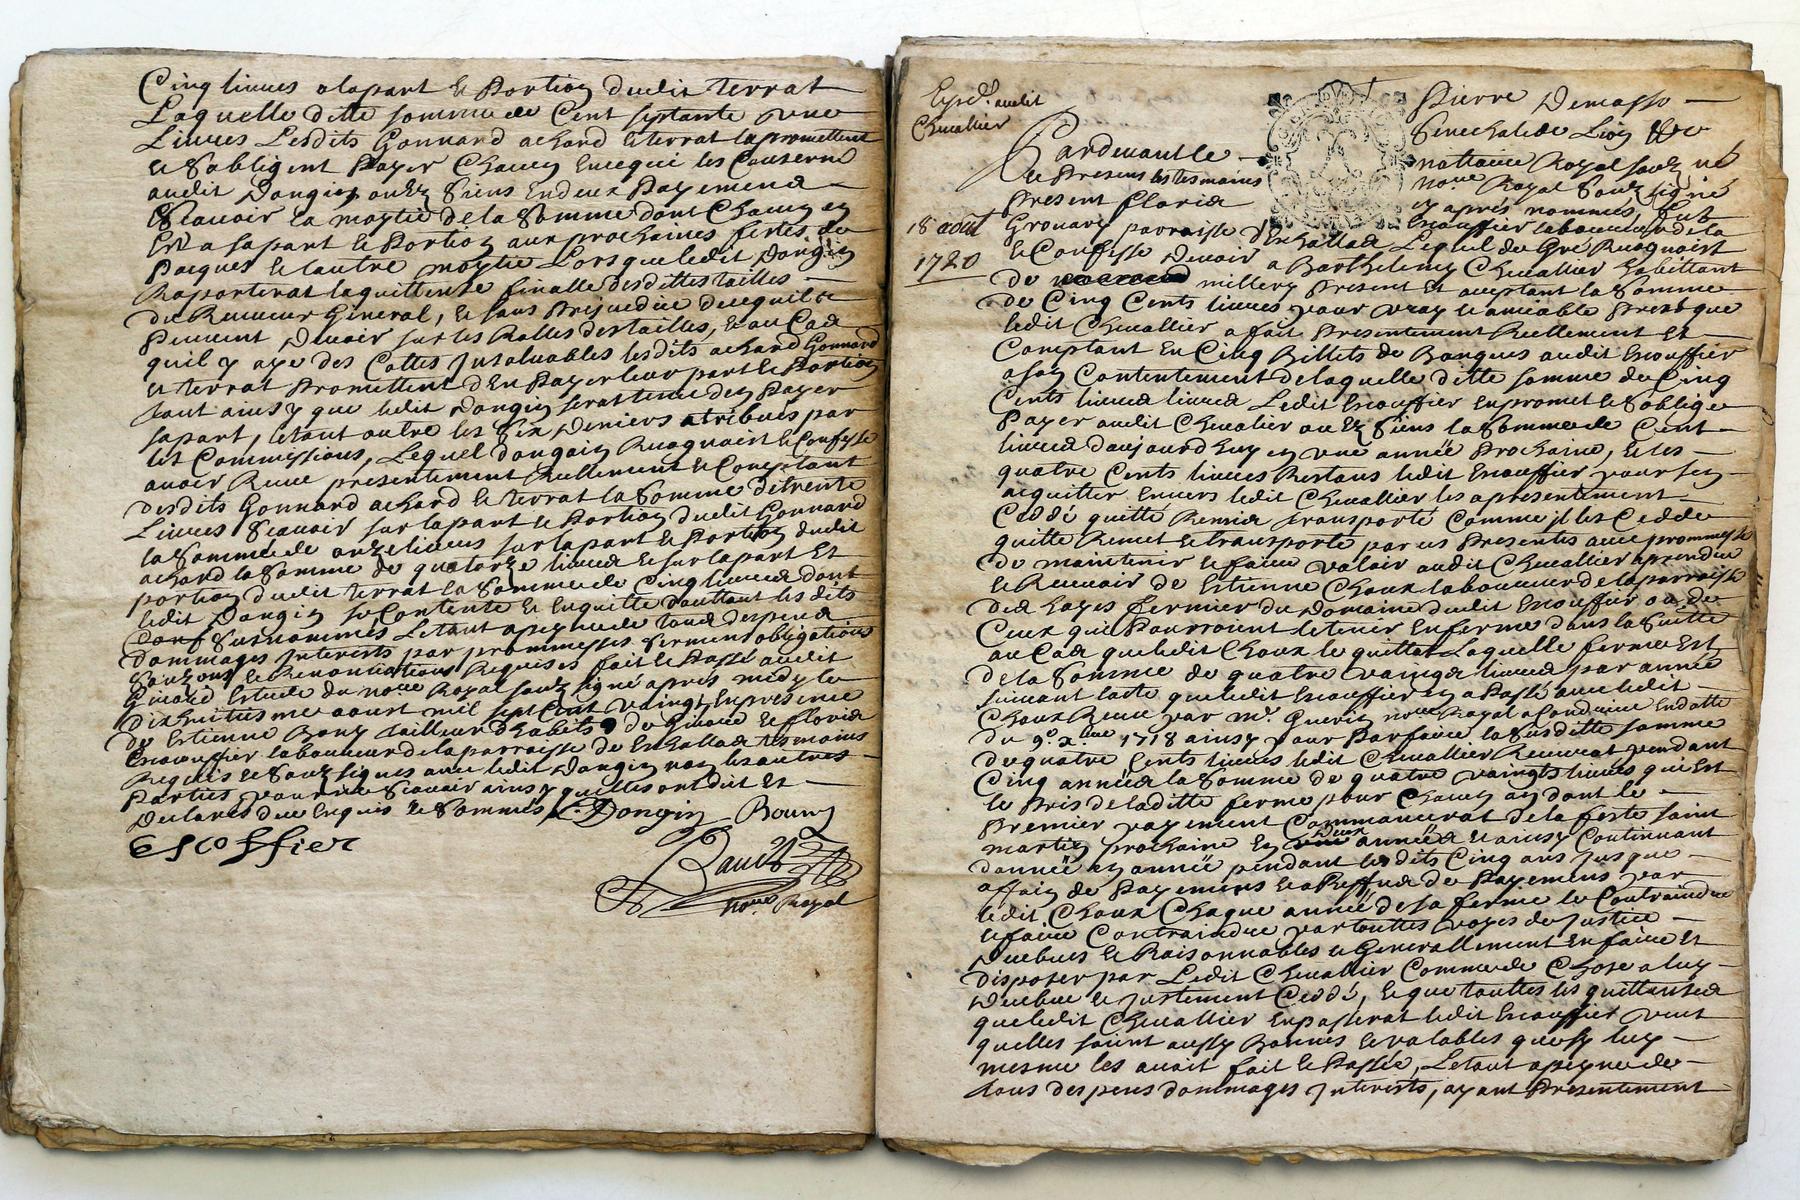 Cinq livres a la part et Portion dudit terrat
Laquelle ditte somme de Cent septante une
Livres Lesdits Gonnard achard et terrat la promettent
et s'obligent Payer Chacun en ce qui les Conserne
audit Dongin ou ez siens En deux Payements
Scauoir la moytie de la somme dont Chacun en
Est a sa part et Portion aux prochaines festes de
Pacques et l'autre moytie Lorsque ledit Dongin
Raporterat la quittence finalle desdittes tailles
du Receueur General, et sans Prejudice de ce quil
Peuuent deuoir sur les Rolles des tailles, et au Cas
quil y aye des Cottes Insoluables lesdits achard Gonnard
et terrat Promettent d'En Payer leur part et Portion
tout ainsy que ledit Dongin serat tenu den Payer
sa part, le tout outre les six deniers atribués par
les Commissions, Lequel dongin Recognoist et Confesse
auoir Receu presentement Reellement et Comptant
desdits Gonnard achard et terrat la somme de trente
Livres scauoir sur la part et Portion dudit Gonnard
la somme de onze livres sur la part et Portion dudit
achard la somme de quatorze livres et sur la part Et
portion dudit terrat la somme de Cinq livres dont
ledit Dongin se Contente et En quitte d'auttant les dits
surnommés Le tout a peyne de tous despens
dommages Interests par prommesses sermens obligations
et Renontiations Requises fait et Passé audit
Estude du no.re Royal souz signé apres midy le
dix huitieme aoust mil sept Cent vaingt En presence
de Estienne Bony tailleur d'habits de et floris
Escouffier laboureur de la parraisse de tesmoins
Requis et souz signes auec ledit Dongin non les autres
Parties pour ne scauoir ainsy quelles ont dit et
declares de ce Enquis et sommés C. Dongin Bouny
escoffier
no.re Royal
Exped. audit
Cheuallier
18 aoust
1720
Pardeuant le
Present floris
Pierre Demasso
Senechal de Lion
nottaire Royal souz né
no.re Royal souz signé
cy aprés nommes, fut
Escouffier laboureur de la
parraisse Lequel de Gre Recognoist
et Confesse deuoir a Barthelemy Cheuallier habittant
de millery present Et aceptant la somme
de Cinq Cents livres pour vray et amiable Prest que
ledit Cheuallier a fait Presentement Reellement et
Comptant En Cinq Billets de Banques audit Escouffier
a son Contentement de laquelle ditte somme de Cinq
Cents livres livres Ledit Escouffier En promet et s'oblige
Payer audit Cheualier ou ez siens la somme de Cent
livres d'aujourd'huy en une année Prochaine, et les
quatre Cents livres Restans ledit Escouffier pour s'en
aquitter Enuers ledit Cheuallier les a presentement
Ceddé quitté Remis transporté Comme jl les Cedde
quitte Remet et transporte par ces Presentes auec prommesse
de maintenir et faire valoir audit Cheuallier a prendre
et Receuoir de Estienne Choux laboureur de la parraisse
des hayes fermier du Domaine dudit Escouffier ou de
Ceux qui Pourroient le tenir En ferme dans la suitte
au Cas que ledit Choux le quittat Laquelle ferme Est
de la Somme de quatre vaingts livres par année
suiuant lacte que ledit Escouffier en a Passé auec ledit
Choux Receu par m.e Guerin no.re Royal a Condrieu En datte
du 9.e x.bre 1718 ainsy pour Parfaire la susditte somme
de quatre Cents livres ledit Cheuallier Receurat pendant
Cinq années la somme de quatre vaingts livres qui Est
le Pris de laditte ferme pour Chacun an dont le
Premier payement Commancerat de la feste saint
martin prochaine En deux années et ainsy Continuant
dannée en année pendant lesdits Cinq ans Jusque
affin de Payemens et a Reffus de Payemens par
ledit Choux Chaque année de sa ferme le Contraindre
et faire Contraindre par touttes voyes de Justice
deues et Raisonnables et Generallement En faire et
disposer par Ledit Cheuallier Comme de Chose a luy
deube et justement Ceddé, et que touttes les quittances
que ledit Cheuallier En passerat ledit Escouffier veut
quelles soient aussy Bonnes et valables que sy luy
mesme les auoit fait et Passée, Le tout a peyne de
tous despens dommages Interests, ayant Presentement